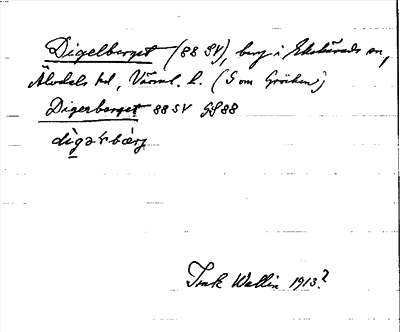 Digelberget (88 SV), berg i Ekshärads sn,
Älvdals hd, Värml. l. (S om Gröcken)
Digerberget 88 SV GS 88
dìgərbærj
Wallin 1913?